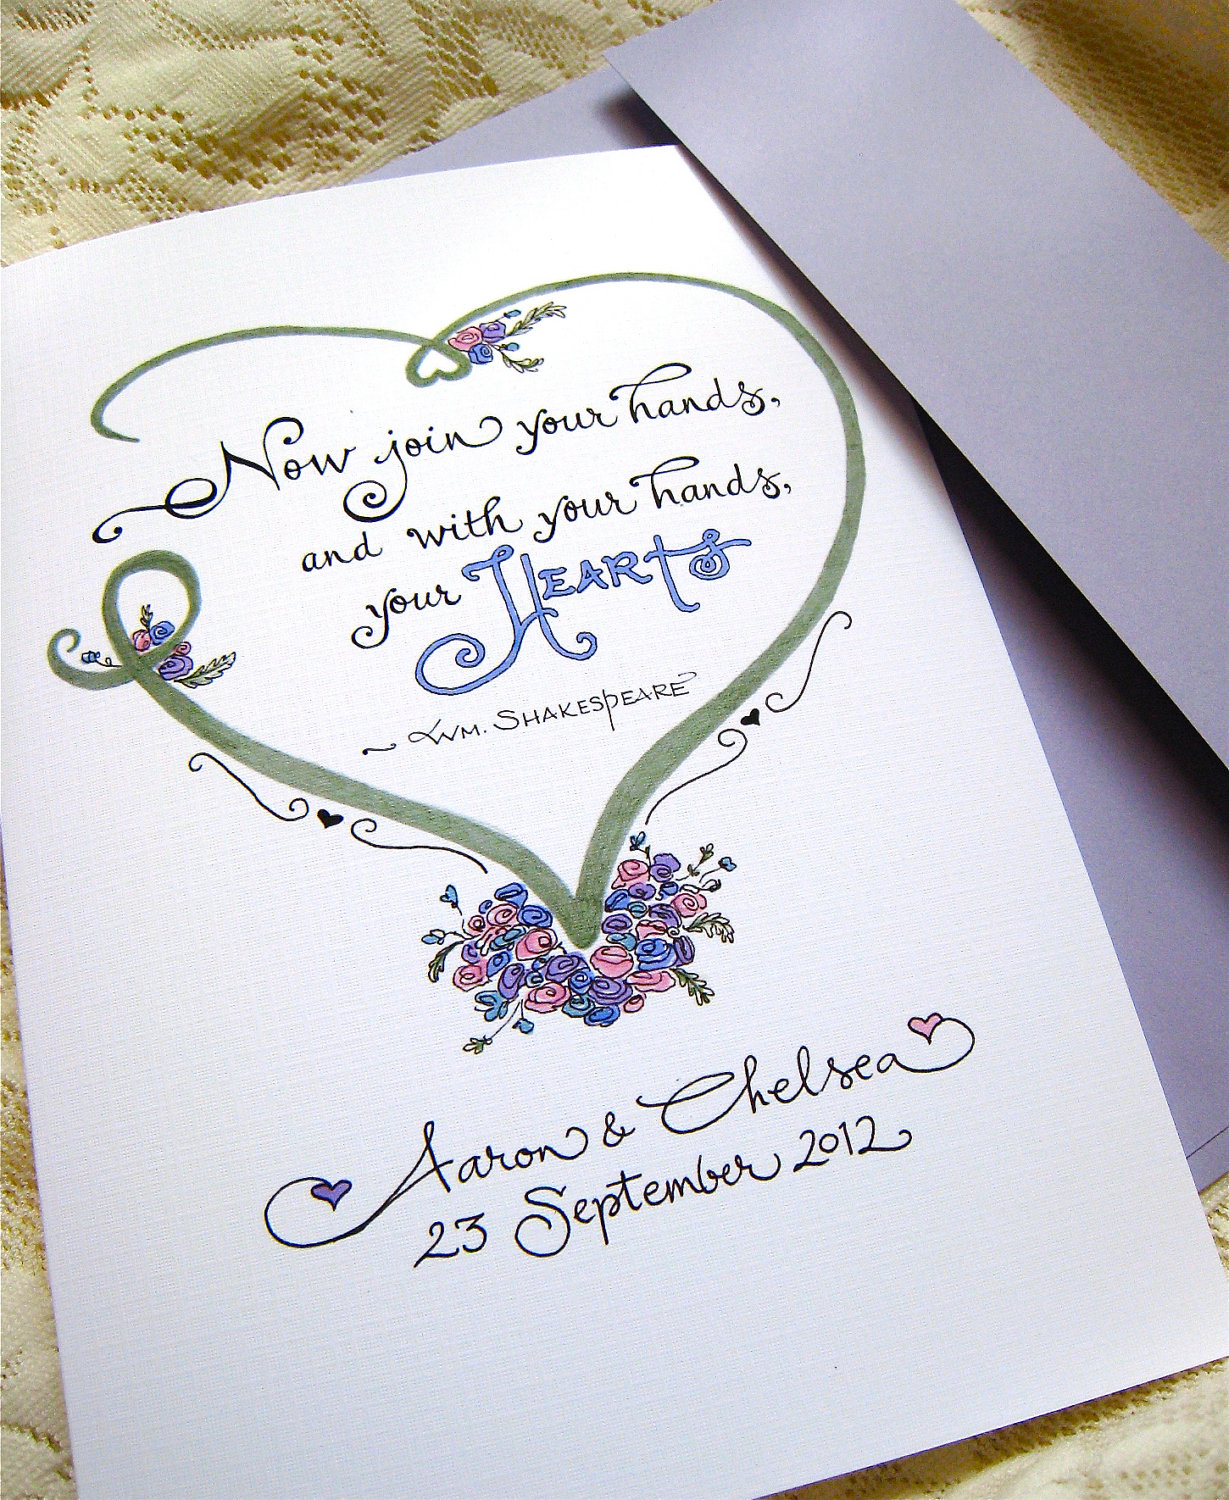 Now join your hands,
and with your hands,
your Hearts
~ Wm. Shakespeare
Aaron & Chelsea
23 September 2012